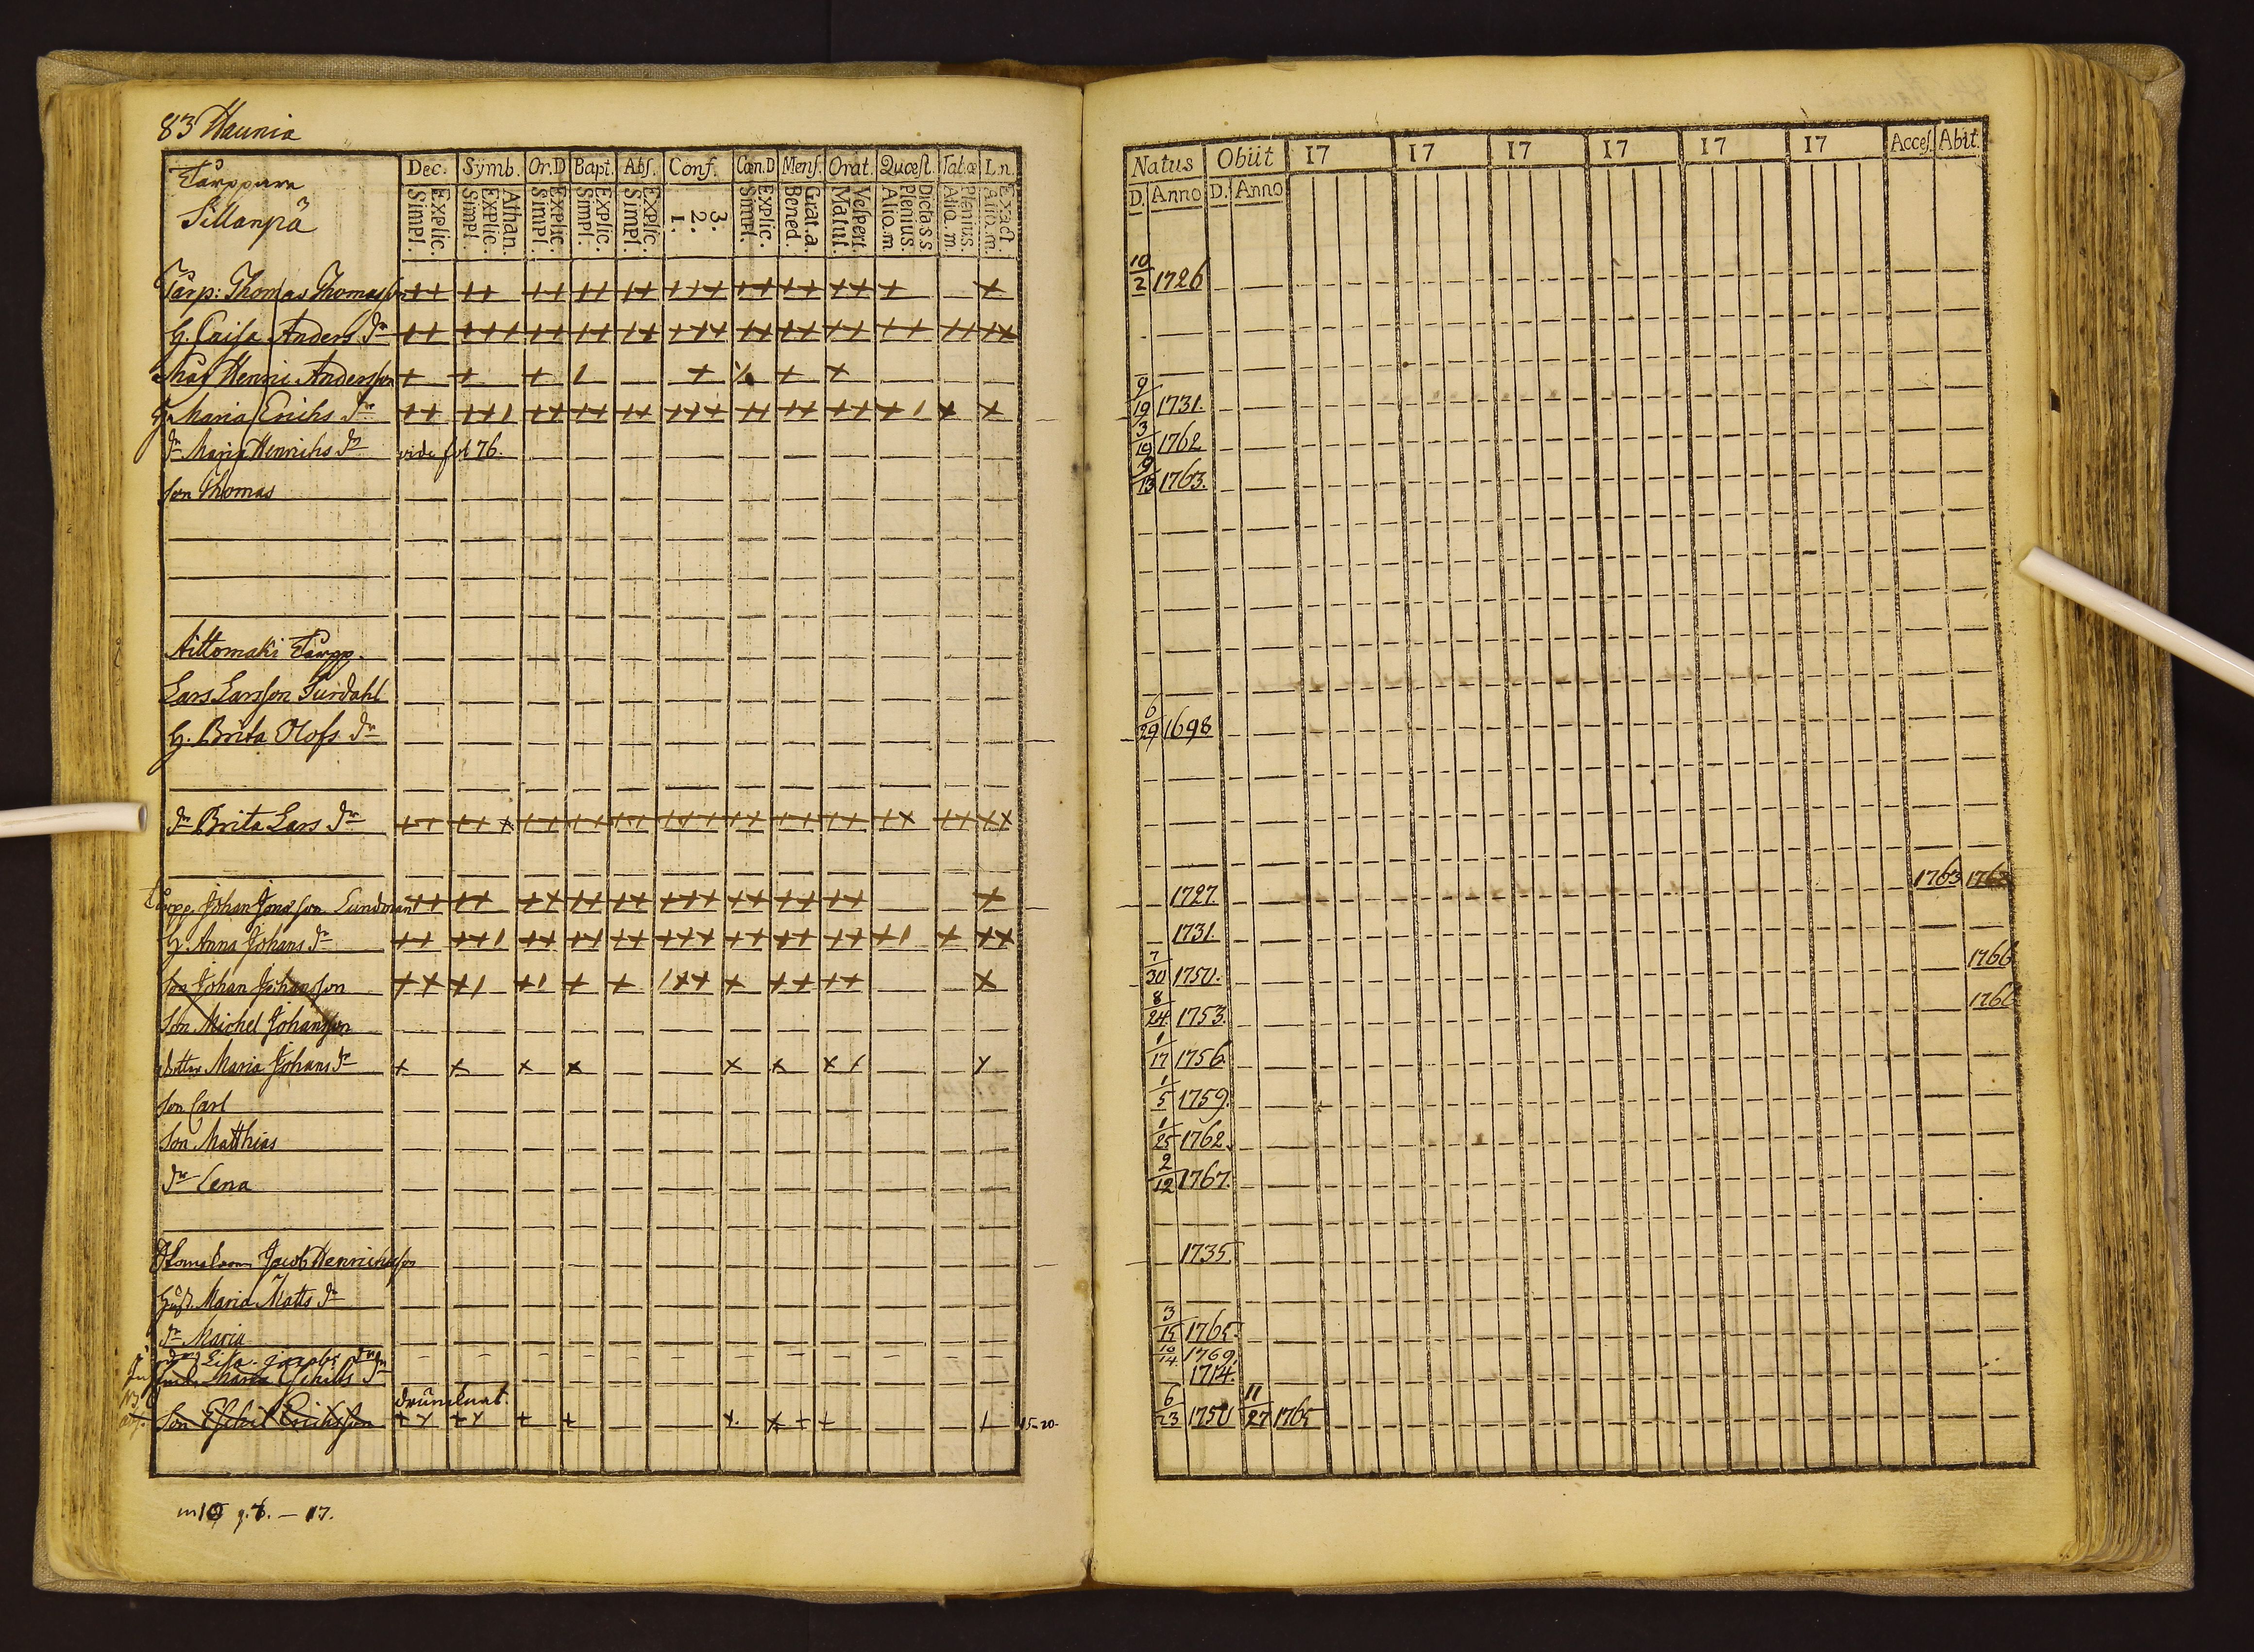 83 Haunia
Tårppare
Sillanpä
Dec. Symb. Or.D Bapt. Abs. Conf. Cœn.D Mens. Orat. Quæst. Tab.œ L.n.
Explic. Simpl. Athan. Explic. Simpl. Explic. Simpl. Explic. Simpl. Explic. Simpl. 3. 2. 1. Explic. Simpl. Grat.a. Bened. Vespert. Matut. Dicta s.s. Plenius. Aliq.m Plenius. Aliq.m. Exact. Aliq.m.
Natus Obiit 17 17 17 17 17 17 Acces. Abit.
D. Anno D. Anno
Tårp: Thomas Thomasson 10/2 1726
H. Caisa Anders dr
Henric Andersson
H. Maria Erichs dr 9/19 1731.
dr Maria Henrichs dr vide fol 76. 3/19 1762
Son Thomas 9/13 1763.
Aittomaki Tårpp.
Lars Larsson Turdahl
H. Brita Olofs dr 6/29 1698
dr Brita Lars dr
Tårpp. Johan Jonasson Lundman 1727. 1763 1763
H. Anna Johans dr 1731.
Son Johan Johansson 7/30 1750. 1766
Son Michel Johansson 8/24 1753. 1766
dotter Maria Johans dr 1/17 1756
Son Carl 1/5 1759.
Son Matthias 1/25 1762.
dr Lena 2/12 1767.
Jacob Henrichsson 1735.
Hust. Maria Matts dr
dr Maria 3/15 1765.
Lisa Jacobs 10/14 1769.
Maria Eskills dr 1714.
drunknat.
Son Eskil Erichsson 15-20- 6/23 1750 11/27 1765
m 10 q. 7. — 17.